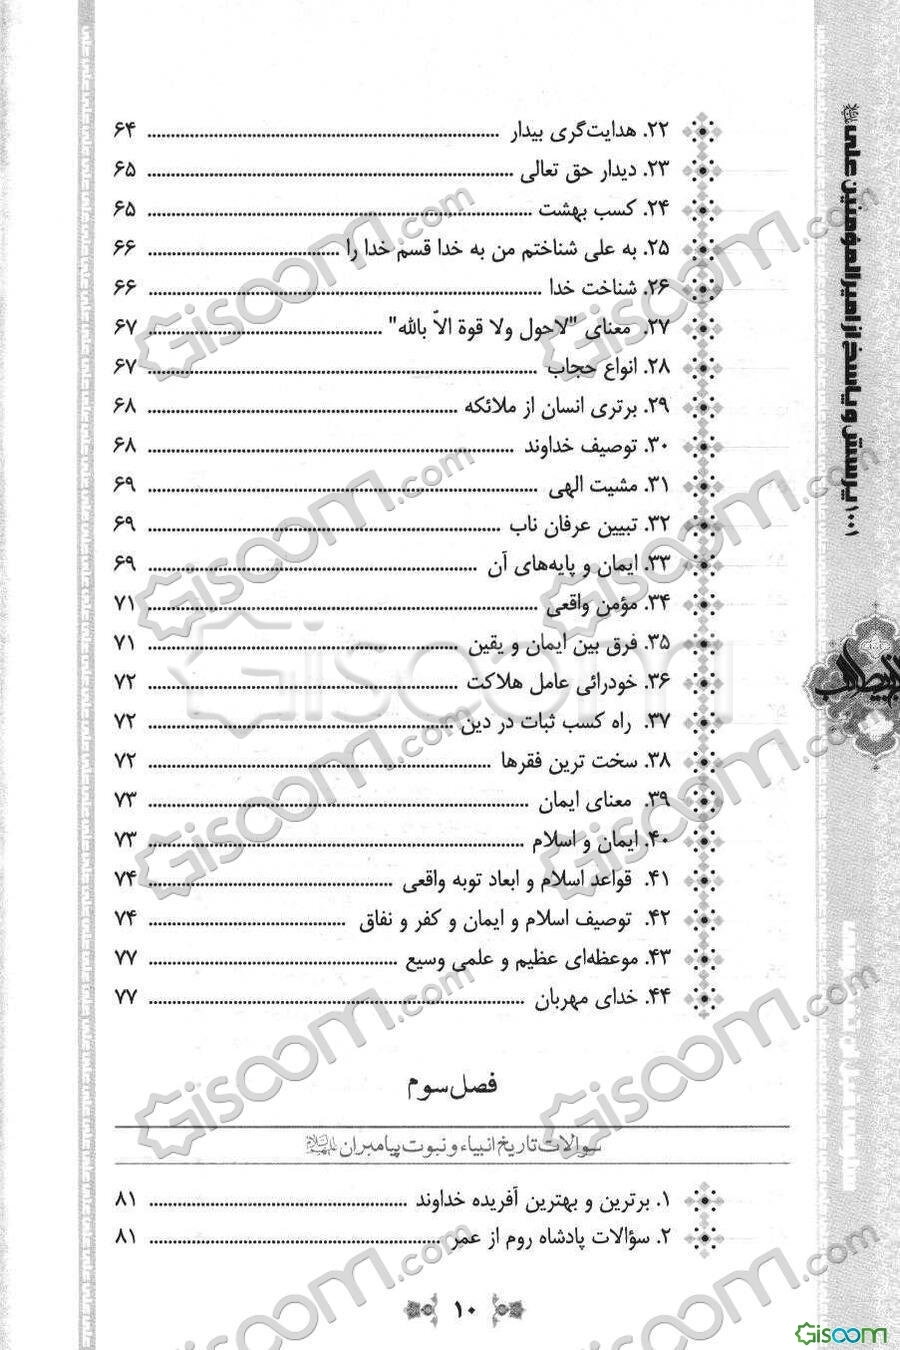 ۱۰۰۱ پرسش و پاسخ از امیرالمؤمنین علی
۲۲. هدایت‌گری بیدار ........ ۶۴
۲۳. دیدار حق تعالی ........ ۶۵
۲۴. کسب بهشت ........ ۶۵
۲۵. به علی شناختم من به خدا قسم خدا را ........ ۶۶
۲۶. شناخت خدا ........ ۶۶
۲۷. معنای "لاحول ولا قوة الاّ بالله" ........ ۶۷
۲۸. انواع حجاب ........ ۶۷
۲۹. برتری انسان از ملائکه ........ ۶۸
۳۰. توصیف خداوند ........ ۶۸
۳۱. مشیت الهی ........ ۶۹
۳۲. تبیین عرفان ناب ........ ۶۹
۳۳. ایمان و پایه‌های آن ........ ۶۹
۳۴. مؤمن واقعی ........ ۷۱
۳۵. فرق بین ایمان و یقین ........ ۷۱
۳۶. خودرائی عامل هلاکت ........ ۷۲
۳۷. راه کسب ثبات در دین ........ ۷۲
۳۸. سخت ترین فقرها ........ ۷۲
۳۹. معنای ایمان ........ ۷۳
۴۰. ایمان و اسلام ........ ۷۳
۴۱. قواعد اسلام و ابعاد توبه واقعی ........ ۷۴
۴۲. توصیف اسلام و ایمان و کفر و نفاق ........ ۷۴
۴۳. موعظه‌ای عظیم و علمی وسیع ........ ۷۷
۴۴. خدای مهربان ........ ۷۷
فصل سوم
سوالات تاریخ انبیاء و نبوت پیامبران
۱. برترین و بهترین آفریده خداوند ........ ۸۱
۲. سؤالات پادشاه روم از عمر ........ ۸۱
۱۰
Gisoom
Gisoom.com